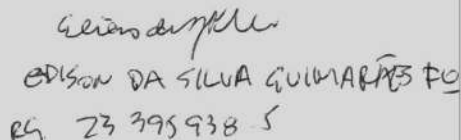 EDISON DA SILVA GUIMARÃES Fº
RG 23 395 938 5